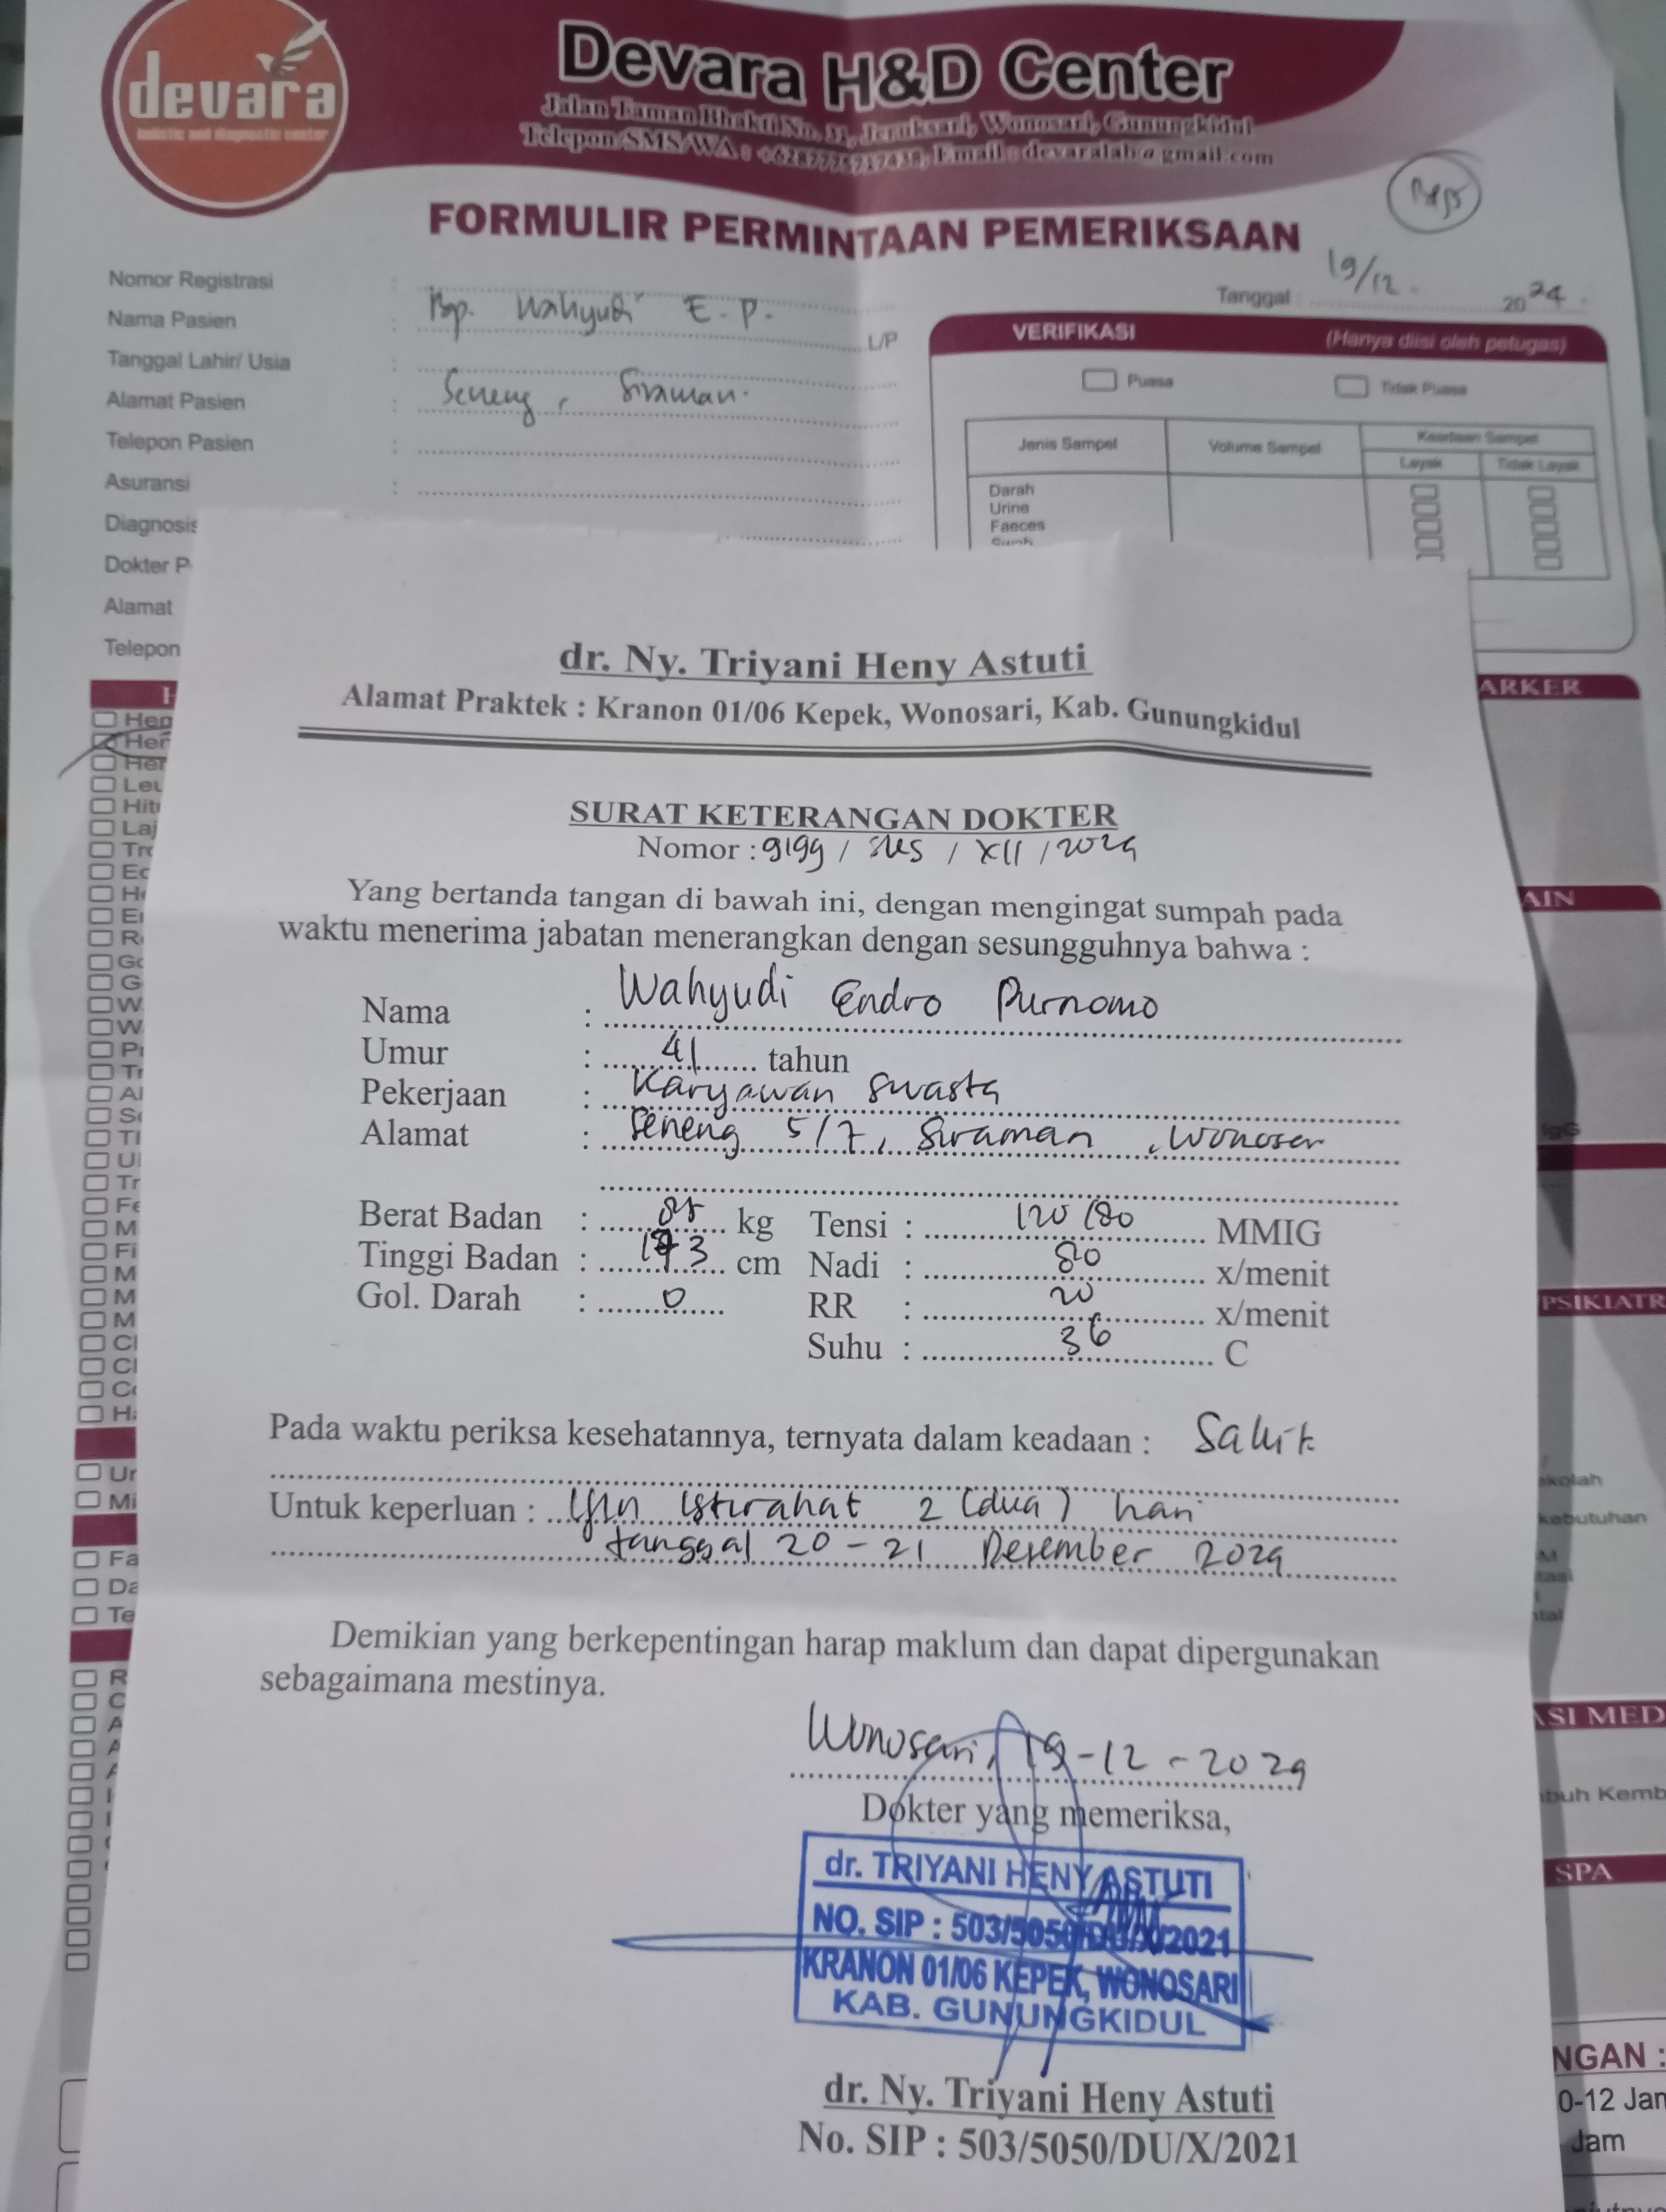 devara
holistic and diagnostic center
Devara H&D Center
Jalan Taman Bhakti No. 31, Jeruksari, Wonosari, Gunungkidul
Telepon/SMS/WA : Email : devaralab@gmail.com
FORMULIR PERMINTAAN PEMERIKSAAN
Tanggal : 19/12 - 2024
Nomor Registrasi :
Nama Pasien : Bp. Wahyudi E.P. L/P
Tanggal Lahir/ Usia :
Alamat Pasien : Seneng, Siraman.
Telepon Pasien :
Asuransi :
Diagnosis
Dokter P
Alamat
Telepon
VERIFIKASI (Hanya diisi oleh petugas)
Puasa Tidak Puasa
Jenis Sampel Volume Sampel Keadaan Sampel
Layak Tidak Layak
Darah
Urine
Faeces
dr. Ny. Triyani Heny Astuti
Alamat Praktek : Kranon 01/06 Kepek, Wonosari, Kab. Gunungkidul
SURAT KETERANGAN DOKTER
Nomor : 9199 / SKS / XII / 2024
Yang bertanda tangan di bawah ini, dengan mengingat sumpah pada
waktu menerima jabatan menerangkan dengan sesungguhnya bahwa :
Nama : Wahyudi Endro Purnomo
Umur : 41 tahun
Pekerjaan : Karyawan Swasta
Alamat : Seneng 5/7, Siraman, Wonosari
Berat Badan : 85 kg Tensi : 120/80 MMIG
Tinggi Badan : 173 cm Nadi : 80 x/menit
Gol. Darah : O RR : 20 x/menit
Suhu : 36 C
Pada waktu periksa kesehatannya, ternyata dalam keadaan : Sakit
Untuk keperluan : Ijin istirahat 2 (dua) hari
tanggal 20 - 21 Desember 2024
Demikian yang berkepentingan harap maklum dan dapat dipergunakan
sebagaimana mestinya.
Wonosari, 19-12-2024
Dokter yang memeriksa,
dr. TRIYANI HENY ASTUTI
NO. SIP : 503/5050/DU/X/2021
KRANON 01/06 KEPEK, WONOSARI
KAB. GUNUNGKIDUL
dr. Ny. Triyani Heny Astuti
No. SIP : 503/5050/DU/X/2021
ARKER
AIN
IgG
PSIKIATR
ekolah
kebutuhan
ASI MED
buh Kemb
SPA
NGAN :
0-12 Jan
Jam